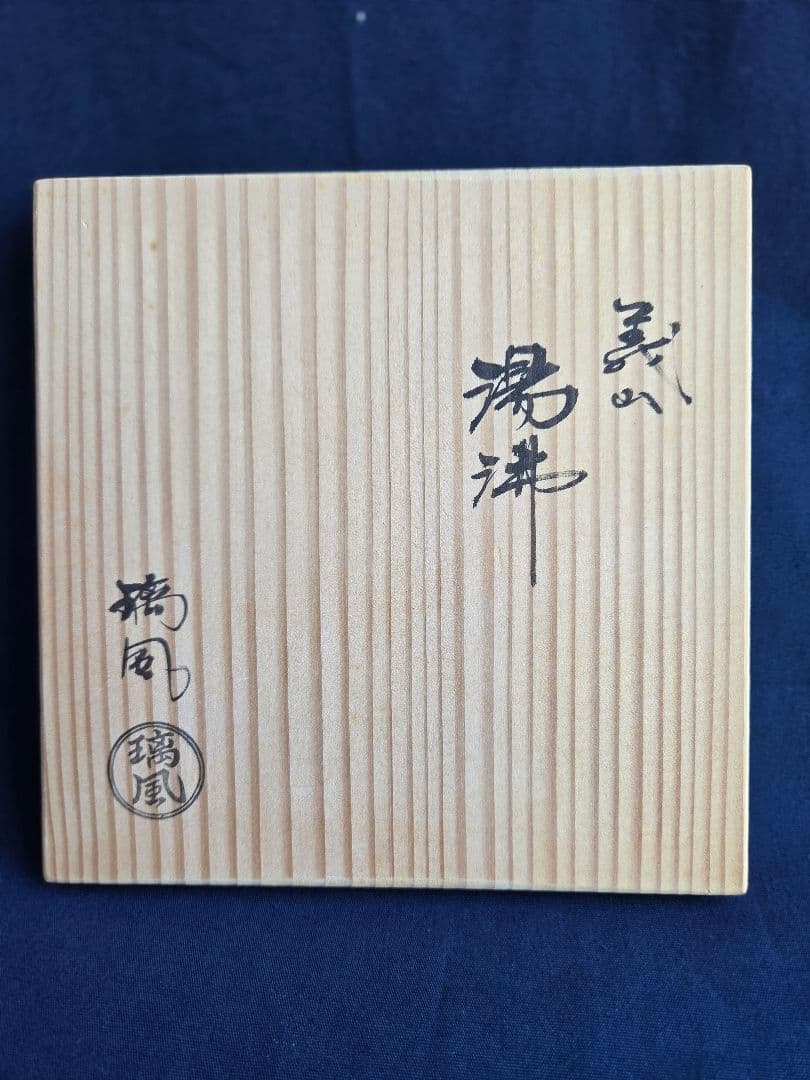 義山
湯沸
璃風
璃風